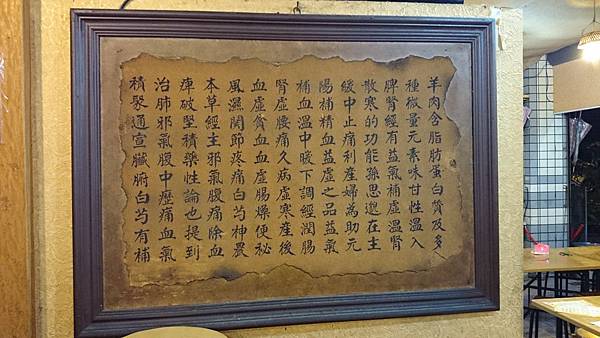 羊肉含脂肪蛋白質及多
種微量元素味甘性溫入
脾腎經有益氣補虛溫腎
散寒的功能孫思邈在主
緩中止痛利產婦為助元
陽補精血益虛之品益氣
補血溫中暖下調經潤腸
腎虛腰痛久病虛寒產後
血虛貧血血虛腸燥便祕
風濕關節疼痛白芍神農
本草經主邪氣腹痛除血
痺破堅積藥性論也提到
治肺邪氣腹中㽲痛血氣
積聚通宣臟腑白芍有補